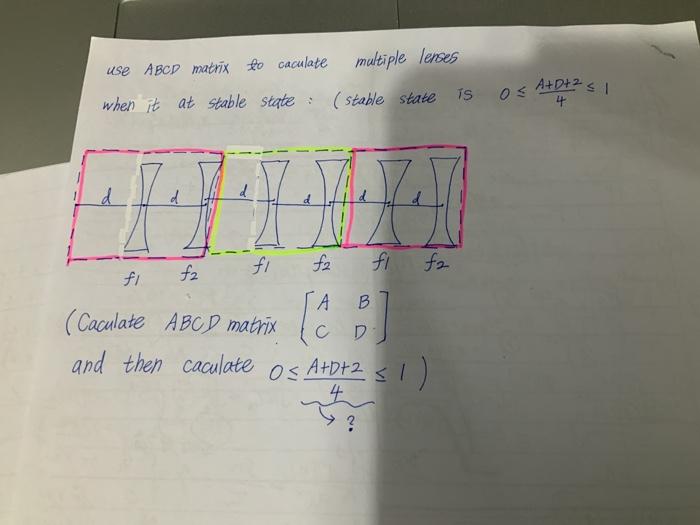 use ABCD matrix to caculate multiple lenses
when it at stable state : ( stable state is 0 ≤ A+D+2/4 ≤ 1
d d d d d d
f1 f2 f1 f2 f1 f2
( Caculate ABCD matrix [A B
C D]
and then caculate 0 ≤ A+D+2/4 ≤ 1 )
→ ?